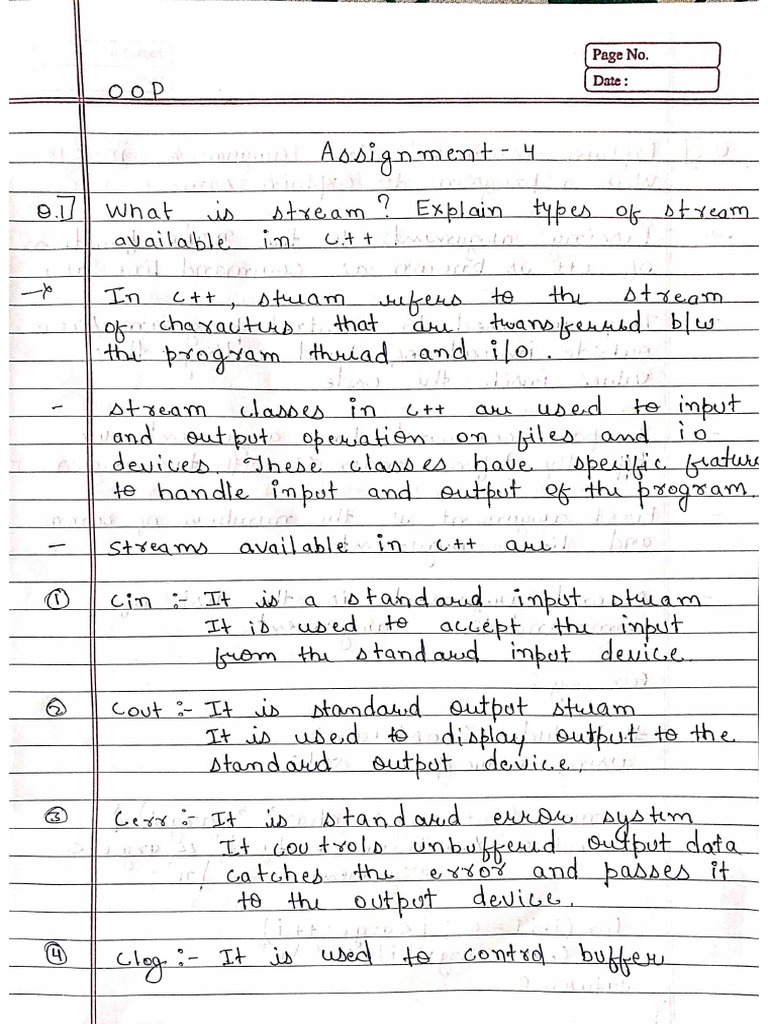 Page No.
Date :
OOP
Assignment - 4
Q.1] What is stream? Explain types of stream
available in C++.
→ In C++, stream refers to the stream
of characters that are transferred b/w
the program thread and i/o.
- stream classes in C++ are used to input
and output operation on files and io
devices. These classes have specific feature
to handle input and output of the program.
- streams available in C++ are
① Cin :- It is a standard input stream
It is used to accept the input
from the standard input device.
② Cout :- It is standard output stream
It is used to display output to the
standard output device.
③ Cerr :- It is standard error system
It controls unbuffered output data
catches the error and passes it
to the output device.
④ Clog :- It is used to control buffer